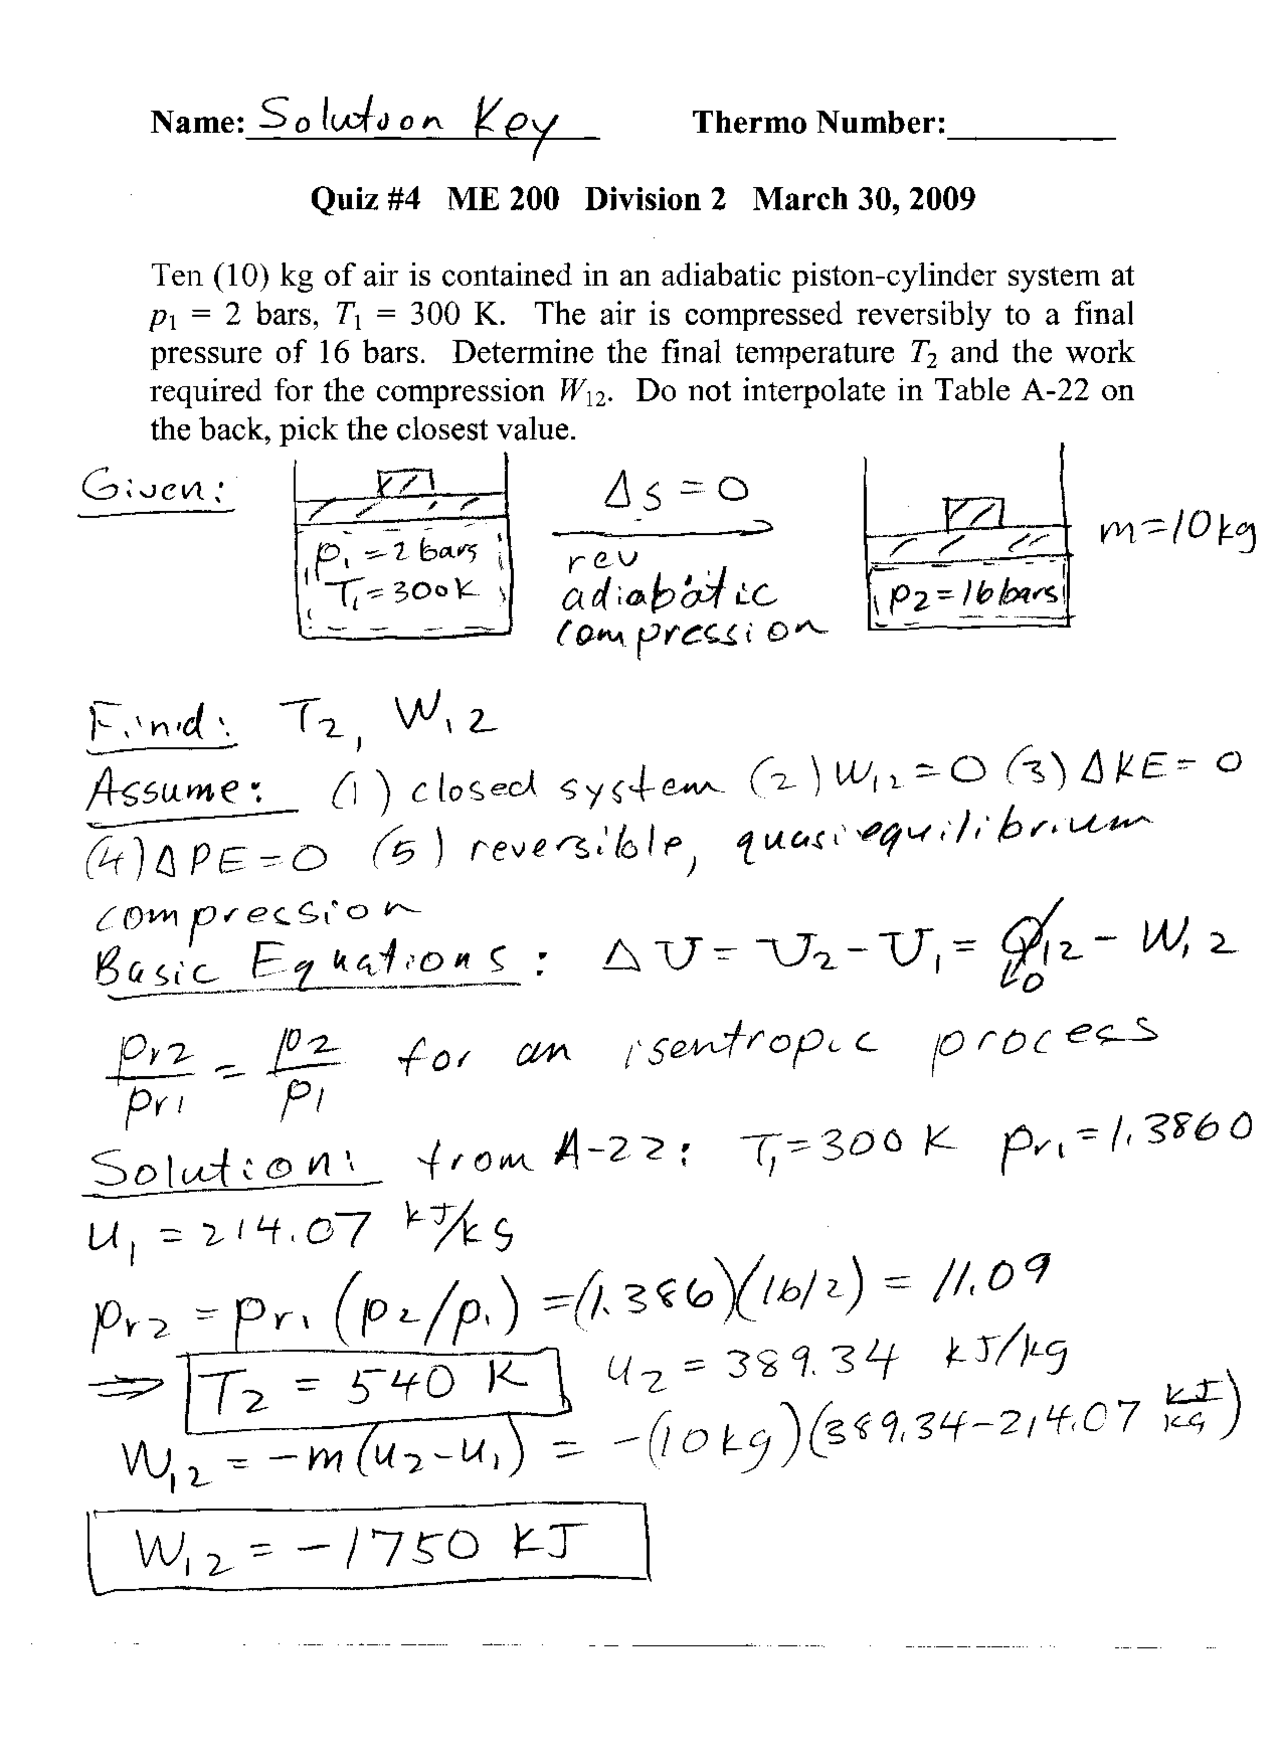 Name: Solution Key Thermo Number:
Quiz #4 ME 200 Division 2 March 30, 2009
Ten (10) kg of air is contained in an adiabatic piston-cylinder system at
p₁ = 2 bars, T₁ = 300 K. The air is compressed reversibly to a final
pressure of 16 bars. Determine the final temperature T₂ and the work
required for the compression W₁₂. Do not interpolate in Table A-22 on
the back, pick the closest value.
Given:
p₁ = 2 bars
T₁ = 300 K
Δs = 0
rev
adiabatic
compression
p₂ = 16 bars
m = 10 kg
Find: T₂, W₁₂
Assume: (1) closed system (2) W₁₂ = 0 (3) ΔKE = 0
(4) ΔPE = 0 (5) reversible, quasiequilibrium
compression
Basic Equations: ΔU = U₂ - U₁ = Q₁₂ - W₁₂
0
pr2/pr1 = p2/p1 for an isentropic process
Solution: from A-22: T₁ = 300 K pr₁ = 1.3860
u₁ = 214.07 kJ/kg
pr2 = pr1 (p2/p1) = (1.386)(16/2) = 11.09
⇒ T₂ = 540 K u₂ = 389.34 kJ/kg
W₁₂ = -m(u₂-u₁) = -(10 kg)(389.34-214.07 kJ/kg)
W₁₂ = -1750 kJ